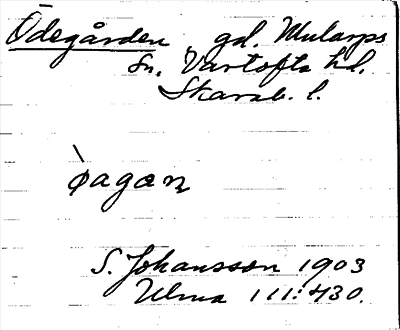 Ödegården gd. Mularps
sn. Vartofta hd.
Skarab. l.
ò̷agan
S. Johansson 1903
Ulma 111:430.